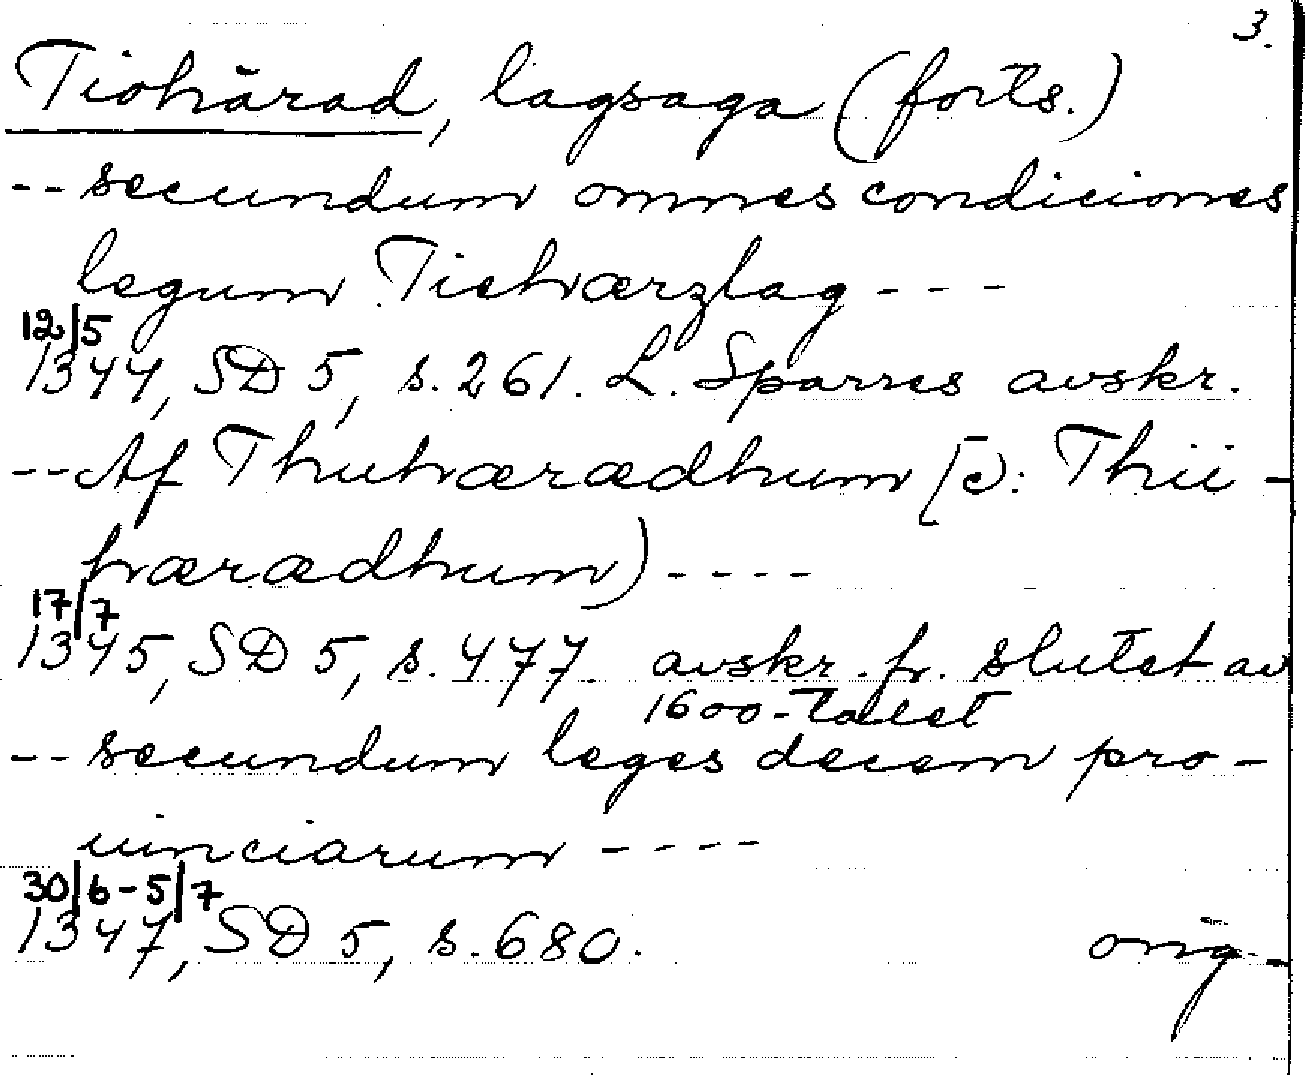 3.
Tiohärad, lagsaga (forts.)
-- secundum omnes condiciones
legum Tiehærzlag ---
12/5
1344, SD 5, s. 261. L. Sparres avskr.
-- Af Thuhærædhum [ɔ: Thii-
hærædhum) ----
17/7
1345, SD 5, s. 477. avskr. fr. slutet av
1600-talet
-- secundum leges decem pro-
uinciarum ----
30/6-5/7
1347, SD 5, s. 680. orig.